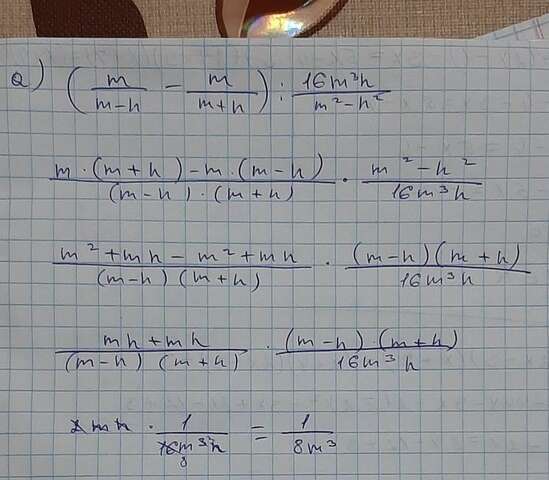 a) (m/(m-n) - m/(m+n)) : 16m³n/(m²-n²)
(m·(m+n)-m·(m-n))/((m-n)·(m+n)) · (m²-n²)/(16m³n)
(m²+mn-m²+mn)/((m-n)(m+n)) · ((m-n)(m+n))/(16m³n)
(mn+mn)/((m-n)(m+n)) · ((m-n)·(m+n))/(16m³n)
2mn · 1/(16m³n) = 1/(8m³)
8